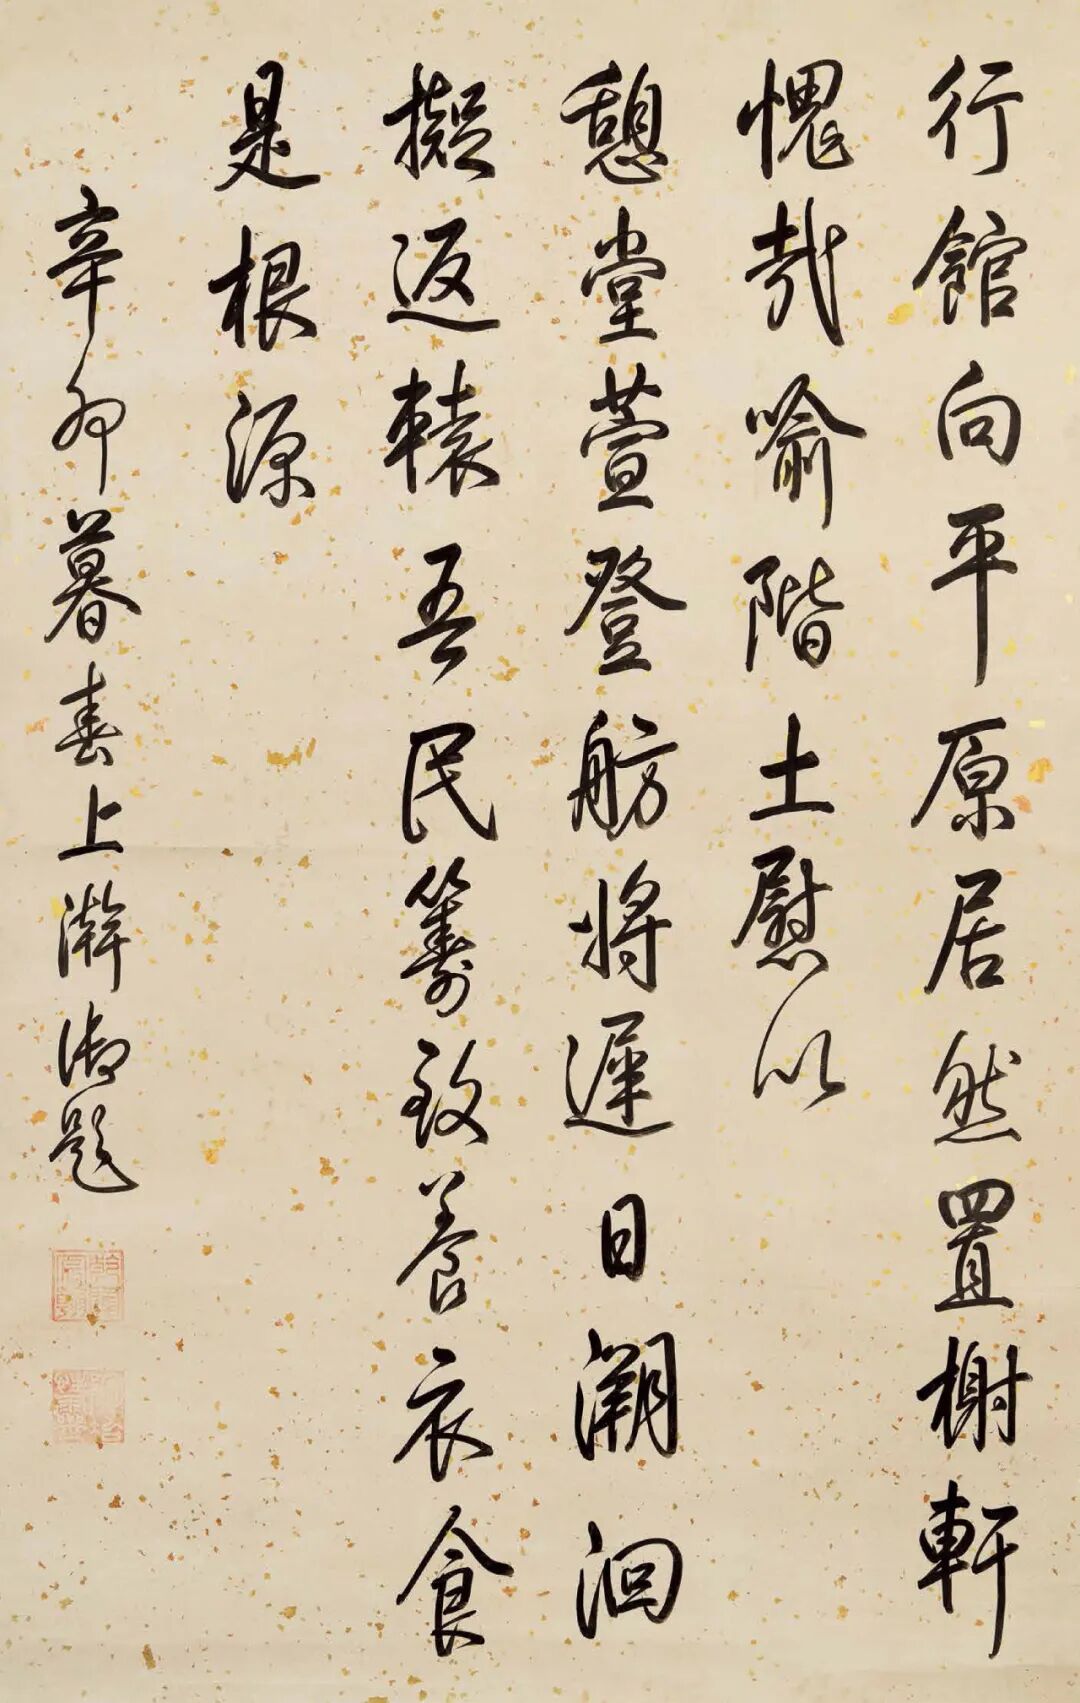 行館向平原居然置榭軒
愧哉喻階土慰以
憩堂萱登舫將遲日溯洄
擬返轅吾民籌致養衣食
是根源
辛卯暮春上澣御題